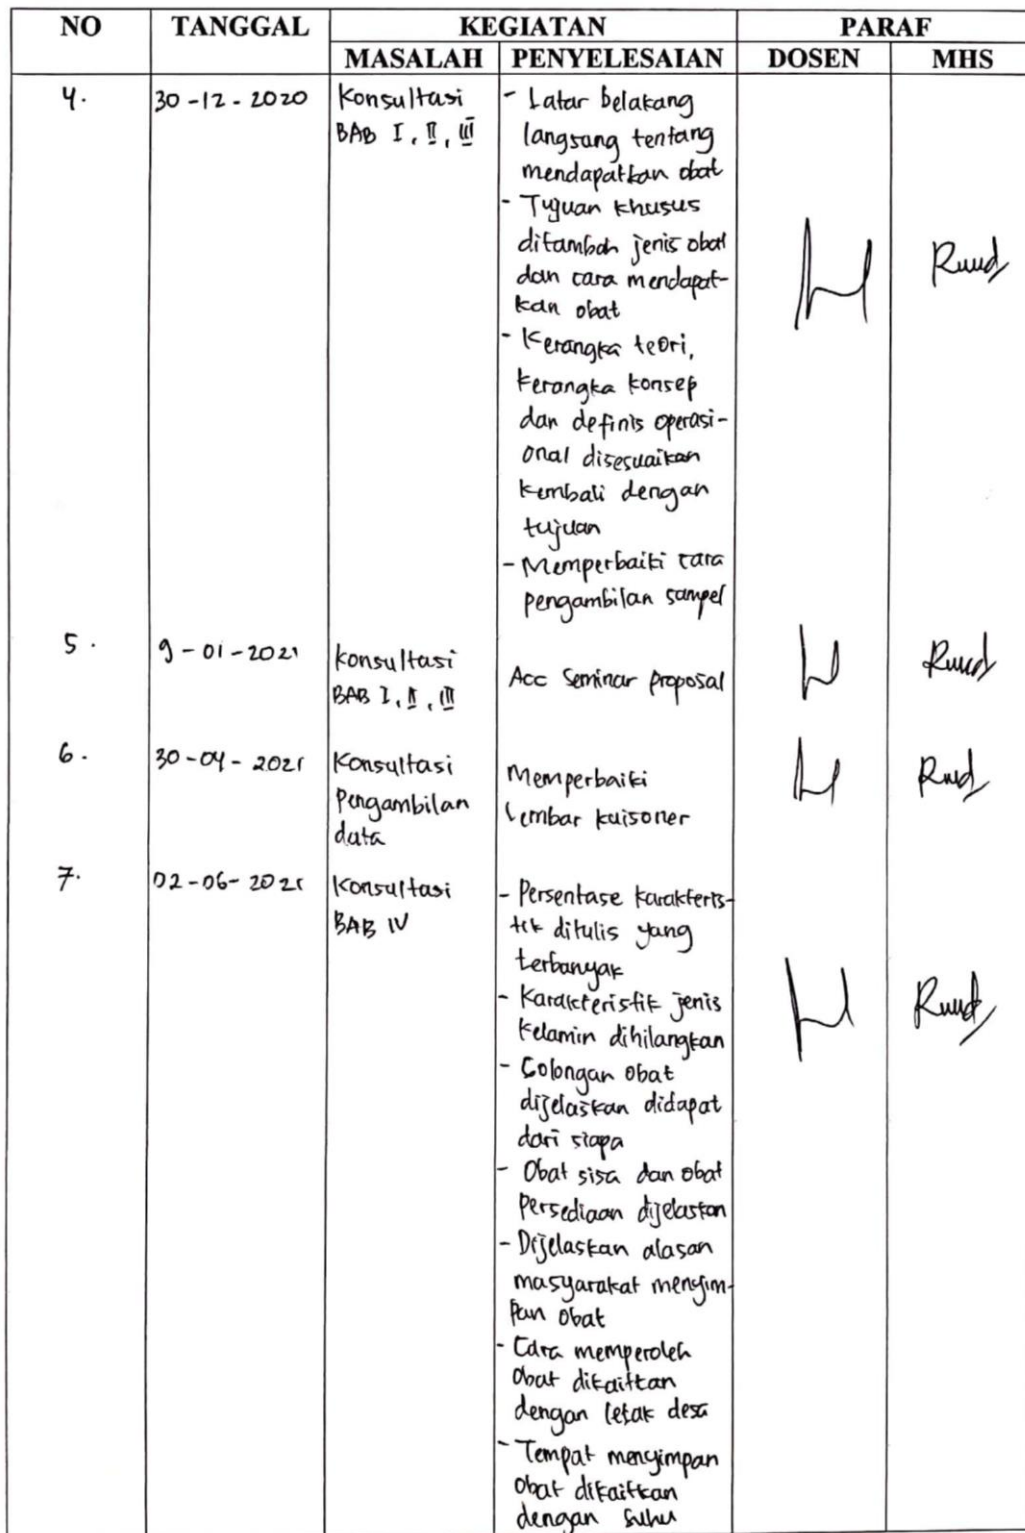 NO TANGGAL KEGIATAN PARAF
MASALAH PENYELESAIAN DOSEN MHS
4. 30-12-2020 Konsultasi
BAB I, II, III
- Latar belakang
langsung tentang
mendapatkan obat
- Tujuan khusus
ditambah jenis obat
dan cara mendapat-
kan obat
- Kerangka teori,
kerangka konsep
dan definis operasi-
onal disesuaikan
kembali dengan
tujuan
- Memperbaiki cara
pengambilan sampel
5. 9-01-2021 konsultasi
BAB I, II, III
Acc Seminar proposal
6. 30-04-2021 Konsultasi
Pengambilan
data
Memperbaiki
lembar kuisoner
7. 02-06-2021 Konsultasi
BAB IV
- Persentase karakteris-
tik ditulis yang
terbanyak
- Karakteristik jenis
kelamin dihilangkan
- Golongan obat
dijelaskan didapat
dari siapa
- Obat sisa dan obat
Persediaan dijelaskan
- Dijelaskan alasan
masyarakat menyim-
pan obat
- Cara memperoleh
obat dikaitkan
dengan letak desa
- Tempat menyimpan
obat dikaitkan
dengan suhu